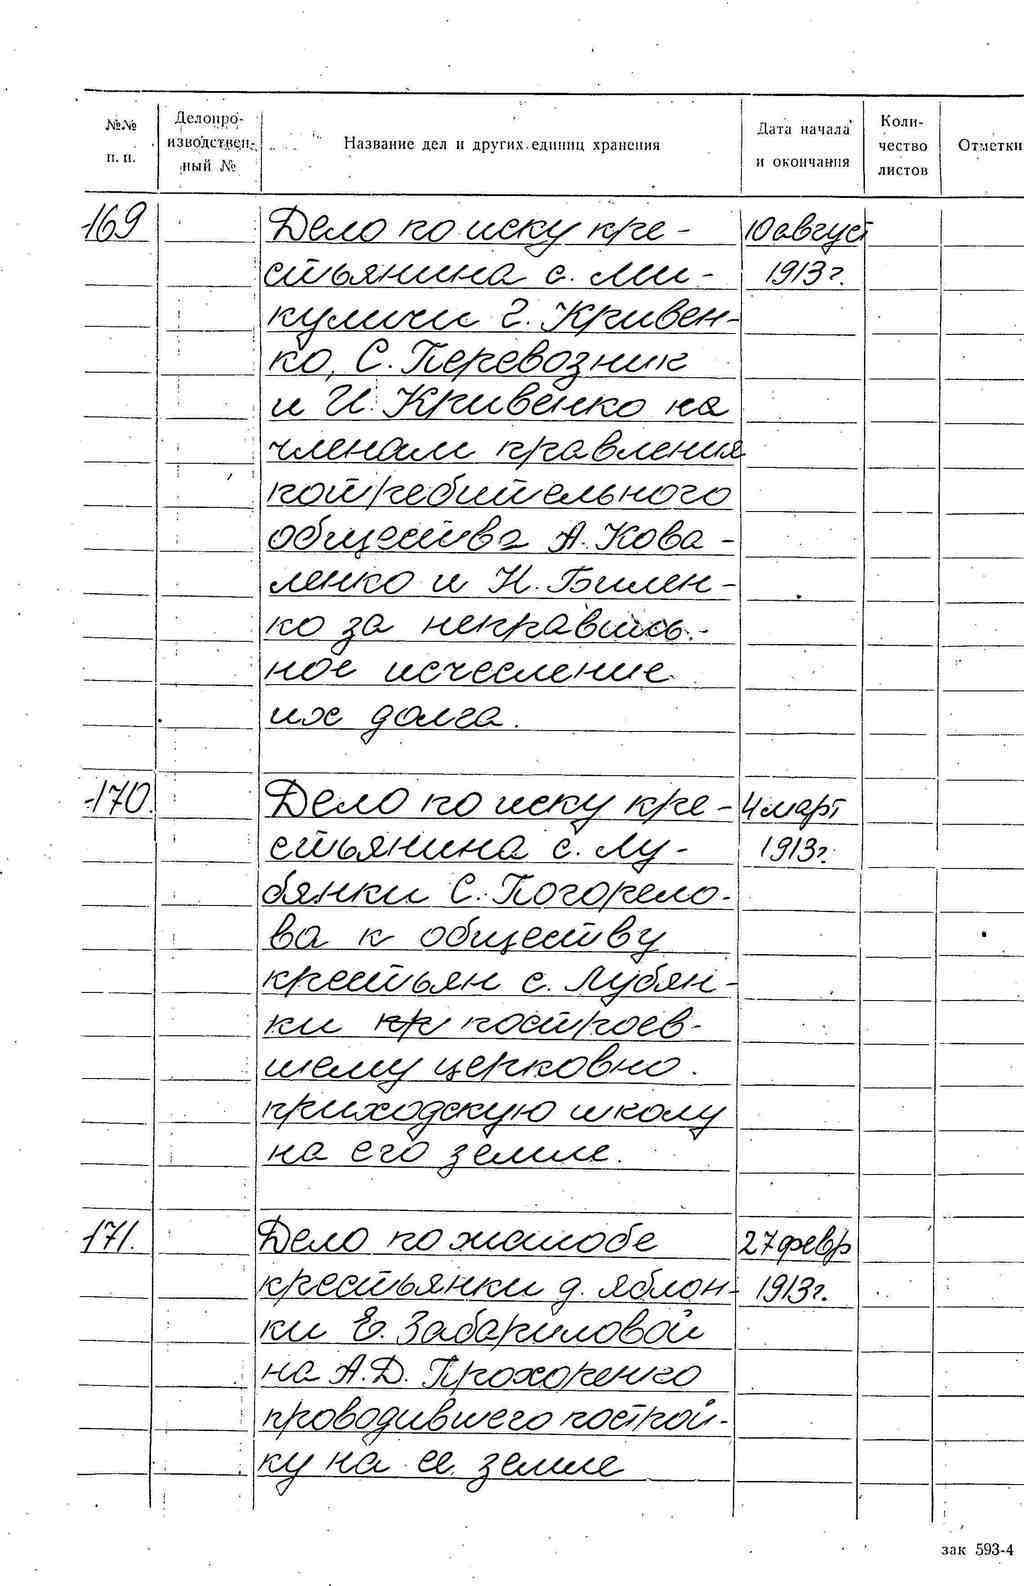 №№ п. п. Делопроизводствен- ный № Название дел и других единиц хранения Дата начала и окончания Коли- чество листов Отметки
169 Дело по иску кре- 10 август
стьянина с. Ми- 1913 г.
куличи г. Кривен-
ко, С. Перевозник
и И. Кривенко на
членам правления
потребительного
общества А. Кова-
ленко и Н. Билен-
ко за неправиль-
ное исчесление
их долга.
170. Дело по иску кре- 4 март
стьянина с. Лу- 1913 г.
бянки С. Погорело-
ва к обществу
крестьян с. Лубян-
ки пр построев-
шему церковно
приходскую школу
на его земле.
171. Дело по жалобе 27 февр
крестьянки д. Яблон- 1913 г.
ки Е. Забариловой
на А.Д. Прохоренко
проводившего построй-
ку на ее земле
зак 593-4